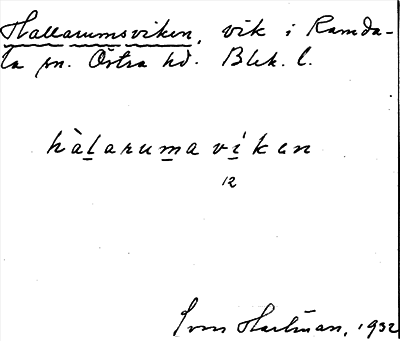 Hallarumsviken, vik i Ramda-
la sn. Östra hd. Blek. l.
hàlarumavíken
12
Sven Hartman, 1932